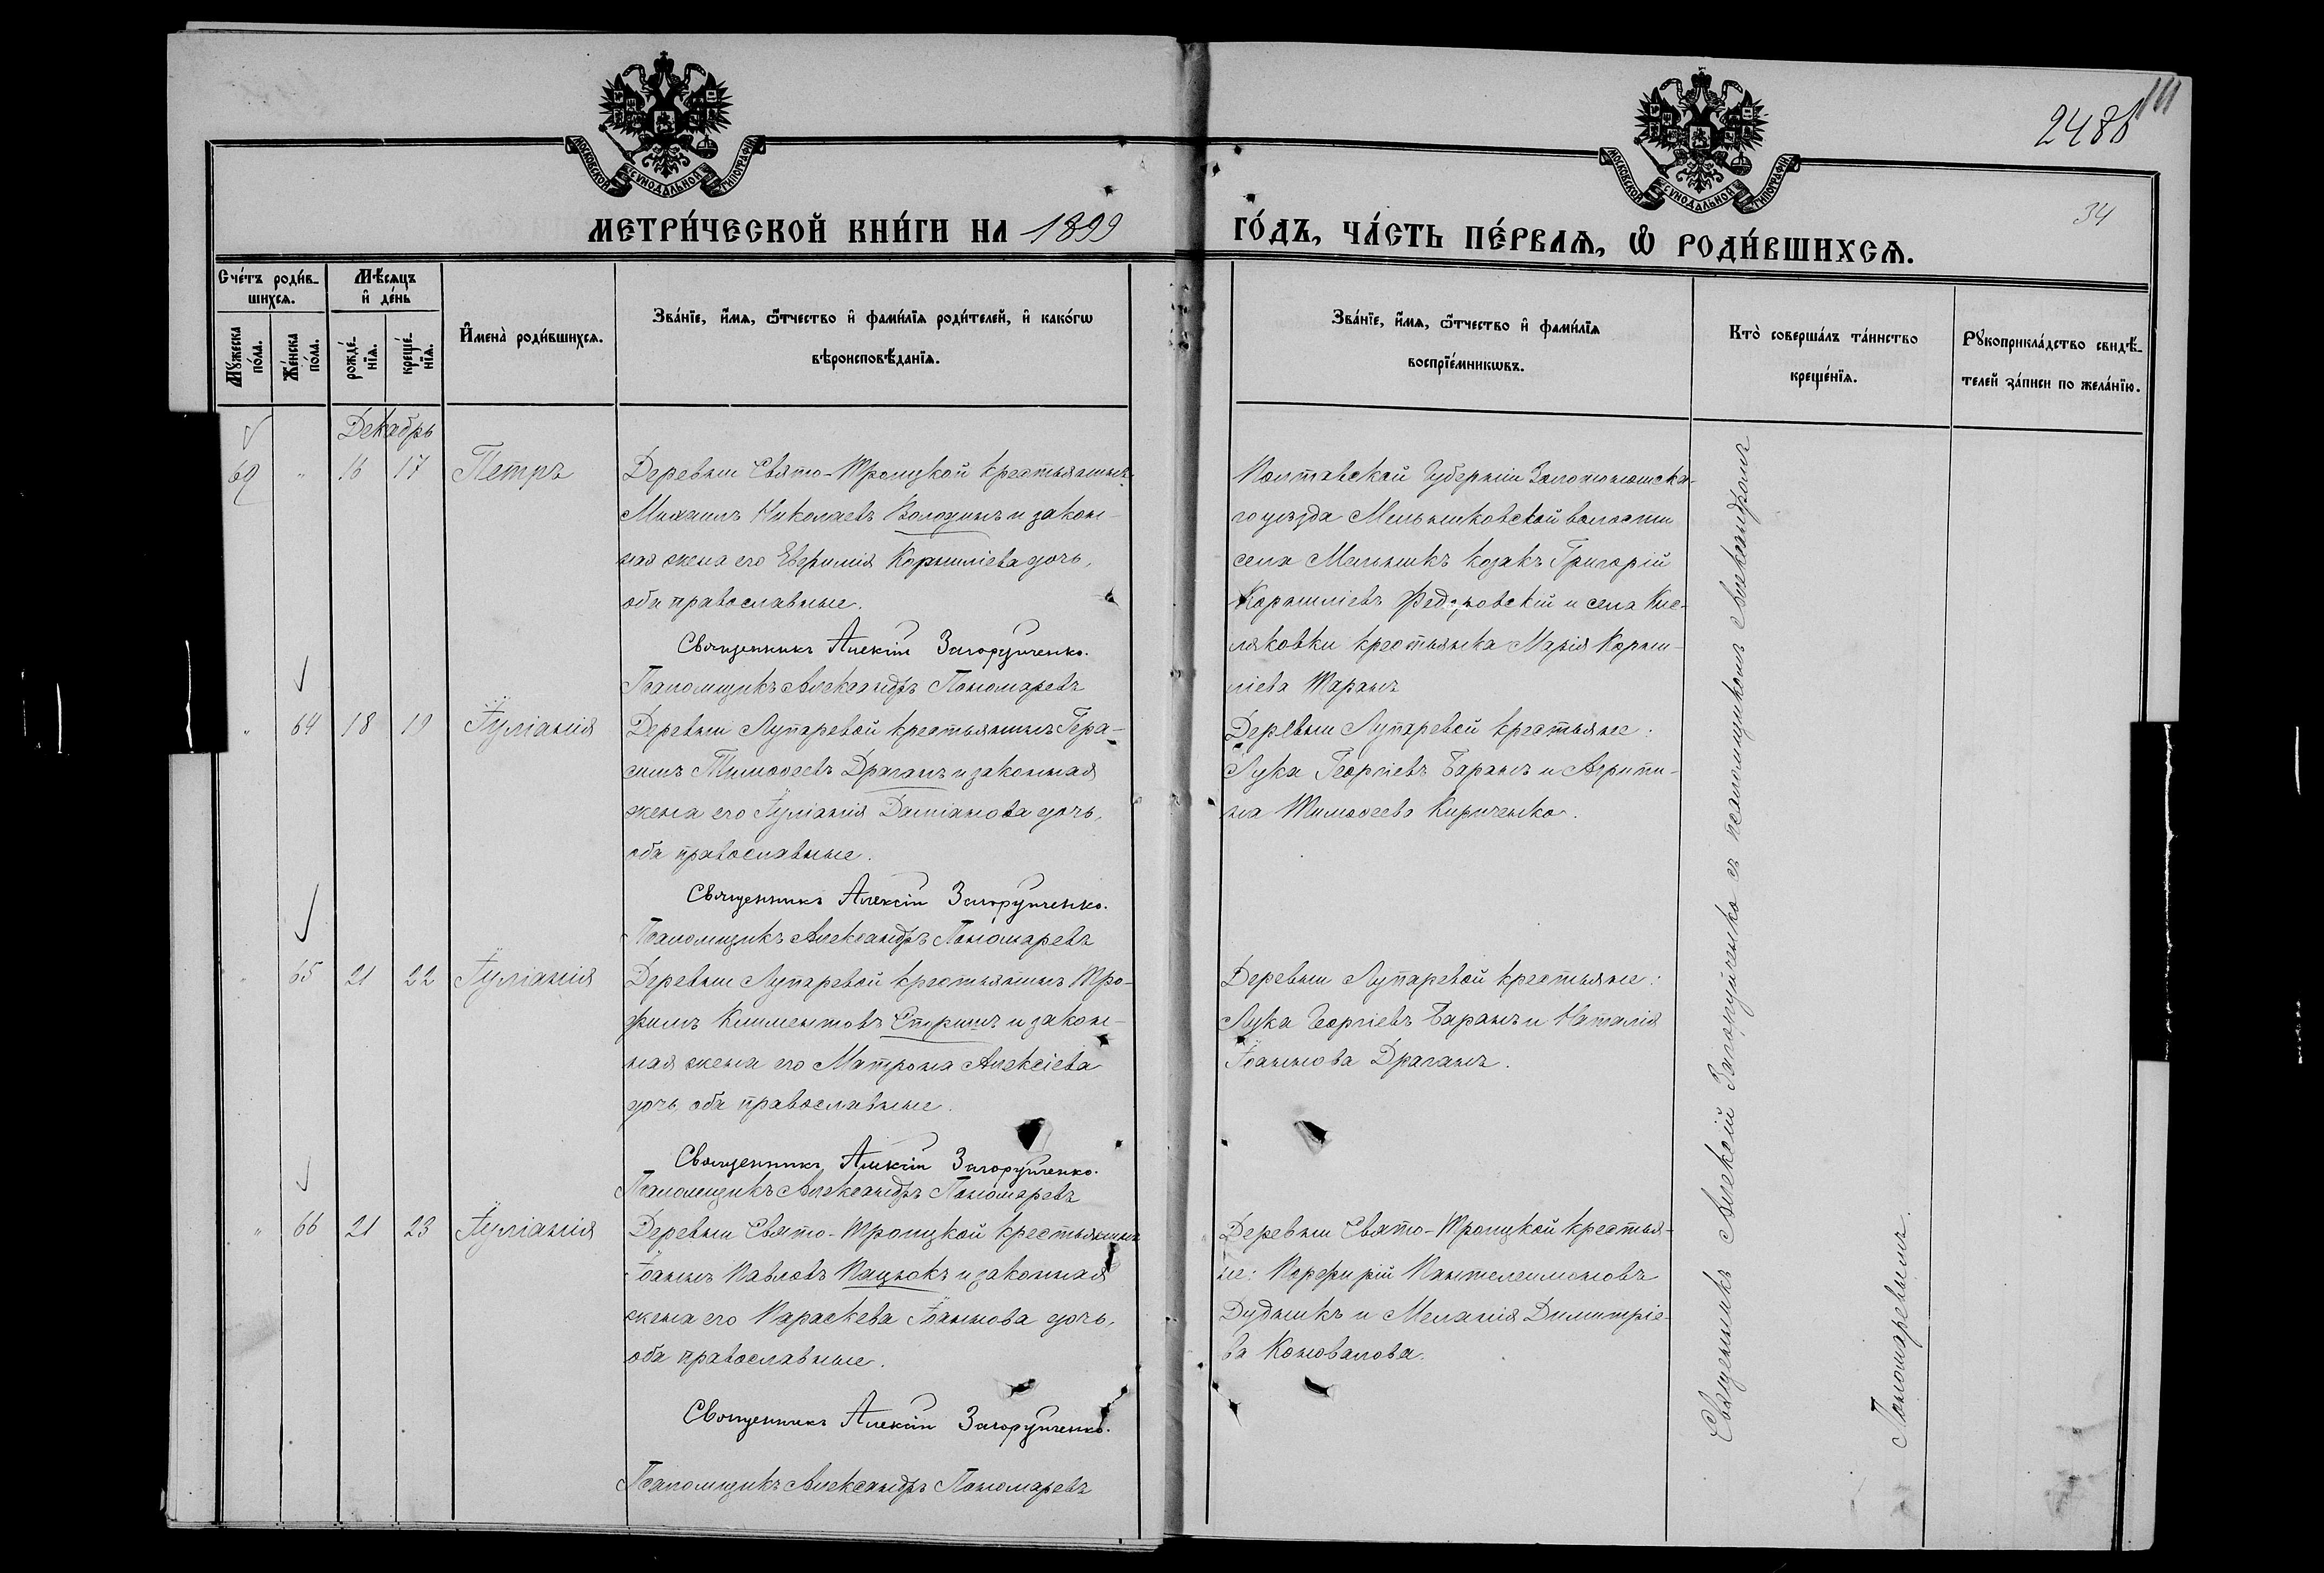 111
2486
34
МОСКОВСКОЙ СѴНОДАЛЬНОЙ ТИПОГРАФІИ
МОСКОВСКОЙ СѴНОДАЛЬНОЙ ТИПОГРАФІИ
МЕТРИ́ЧЕСКОЙ КНИ́ГИ НА 1899
ГО́ДЪ, ЧА́СТЬ ПЕ́РВАѦ, Ѡ҆ РОДИ́ВШИХСѦ.
Сче́тъ роди́в-
шихсѧ.
Мѣ́сѧцъ
и҆ де́нь
Мꙋ́жеска
по́ла.
Же́нска
по́ла.
рожде́-
нїѧ.
креще́-
нїѧ.
И҆мена̀ роди́вшихсѧ.
Зва́нїе, и҆́мѧ, ѻ҆́тчество и҆ фами́лїѧ роди́телей, и҆ како́гѡ
вѣроисповѣ́данїѧ.
Зва́нїе, и҆́мѧ, ѻ҆́тчество и҆ фами́лїѧ
воспрїе́мникѡвъ.
Кто̀ соверша́лъ та́инство
креще́нїѧ.
Рꙋкоприкла́дство свидѣ́-
телей за́писи по жела́нїю.
Декабрь
69 " 16 17 Петръ
Деревни Свято-Троицкой крестьянинъ
Михаилъ Николаевъ Володинъ и закон-
ная жена его Евфимія Корниліева дочь,
оба православные.
Священникъ Алексій Загоруйченко.
Псаломщикъ Александръ Пономаревъ
Полтавской Губерніи Золотоношска-
го уѣзда Мельниковской волости
села Мельникъ козакъ Григорій
Корниліевъ Федоровскій и села Кис-
ляковки крестьянка Марія Корни-
ліева Таранъ
" 64 18 19 Іуліанія
Деревни Лупаревой крестьянинъ Гера-
симъ Тимоѳеевъ Драганъ и законная
жена его Іуліанія Даміанова дочь,
оба православные.
Священникъ Алексій Загоруйченко.
Псаломщикъ Александръ Пономаревъ
Деревни Лупаревой крестьяне:
Лука Георгіевъ Баранъ и Агрипи-
на Тимоѳеева Кириченко.
" 65 21 22 Іуліанія
Деревни Лупаревой крестьянинъ Тро-
фимъ Климентовъ Стриж и закон-
ная жена его Матрона Алексіева
дочь, оба православные.
Священникъ Алексій Загоруйченко.
Псаломщикъ Александръ Пономаревъ
Деревни Лупаревой крестьяне:
Лука Георгіевъ Баранъ и Наталія
Іоаннова Драганъ.
" 66 21 23 Іуліанія
Деревни Свято-Троицкой крестьянинъ
Іоаннъ Павловъ Пацюкъ и законная
жена его Параскева Іоаннова дочь,
оба православные.
Священникъ Алексій Загоруйченко.
Псаломщикъ Александръ Пономаревъ
Деревни Свято-Троицкой крестья-
не: Порфирій Пантелеимоновъ
Дудникъ и Меланія Димитріе-
ва Коновалова.
Священникъ Алексій Загоруйченко съ псаломщикомъ Александромъ
Пономаревымъ.